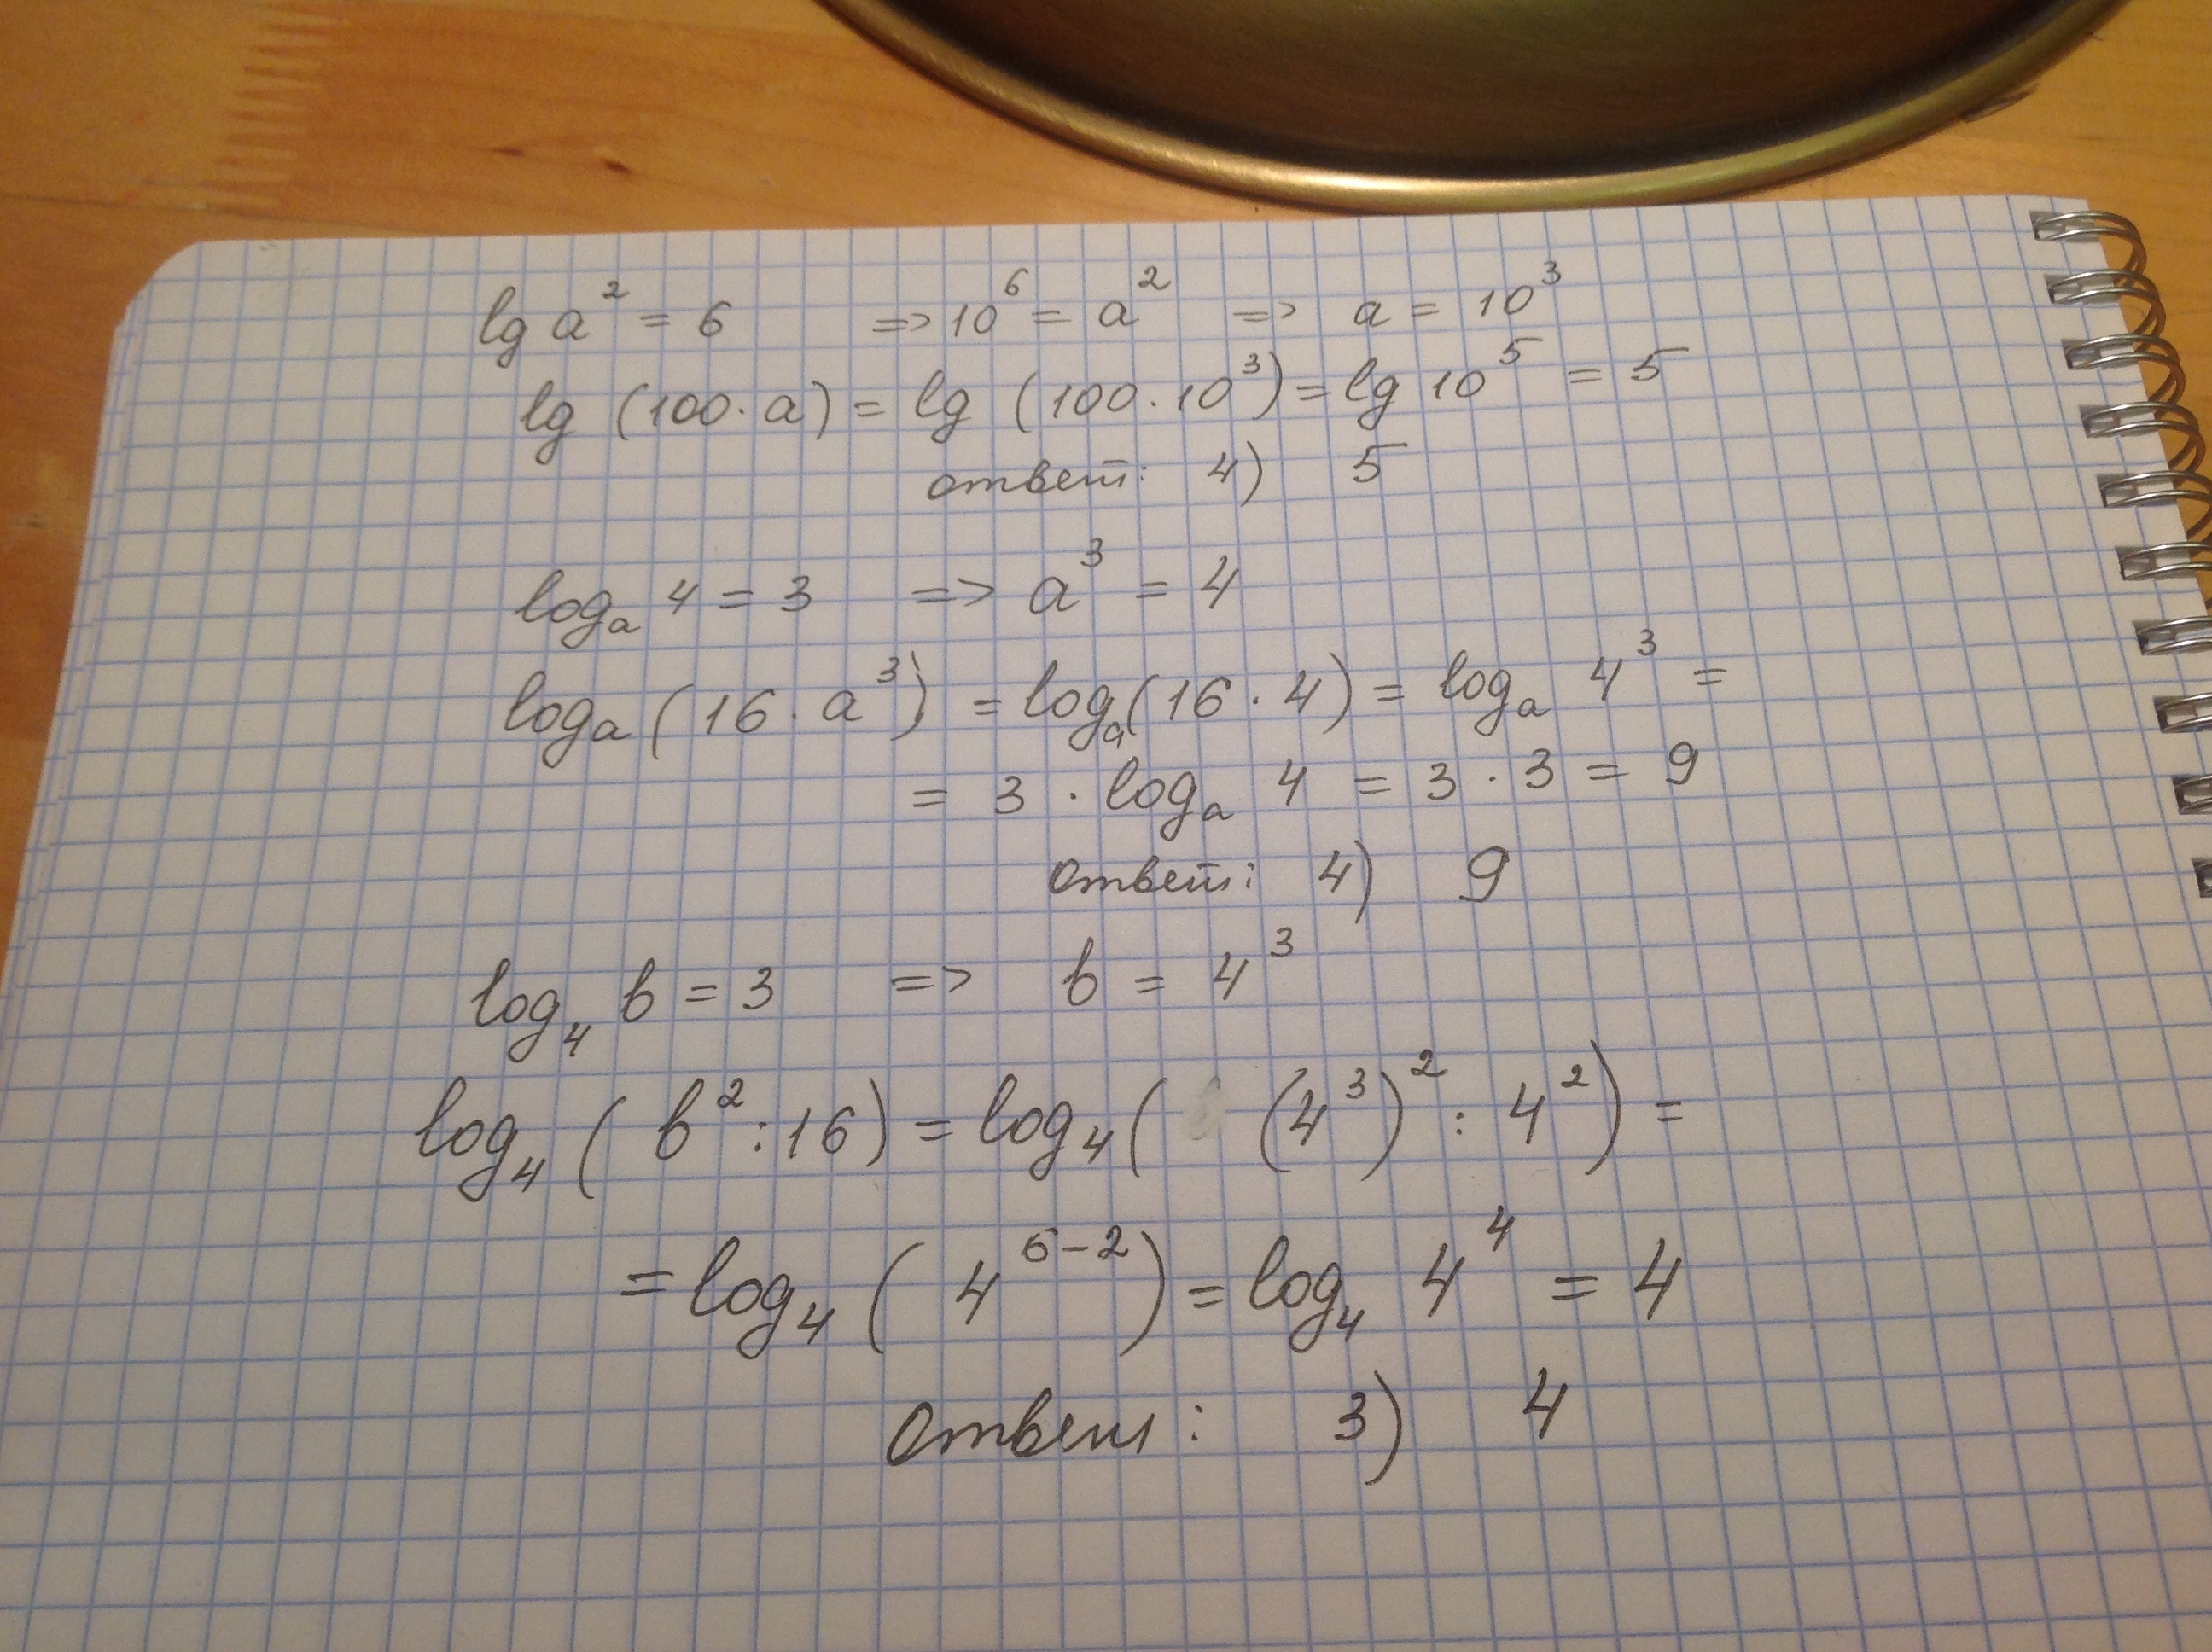 lg a² = 6 => 10⁶ = a² => a = 10³
lg (100·a) = lg (100·10³) = lg 10⁵ = 5
ответ: 4) 5
logₐ 4 = 3 => a³ = 4
logₐ (16·a³) = logₐ(16·4) = logₐ 4³ =
= 3·logₐ 4 = 3·3 = 9
Ответ: 4) 9
log₄ b = 3 => b = 4³
log₄ (b² : 16) = log₄ ((4³)² : 4²) =
= log₄ (4⁶⁻²) = log₄ 4⁴ = 4
Ответ: 3) 4